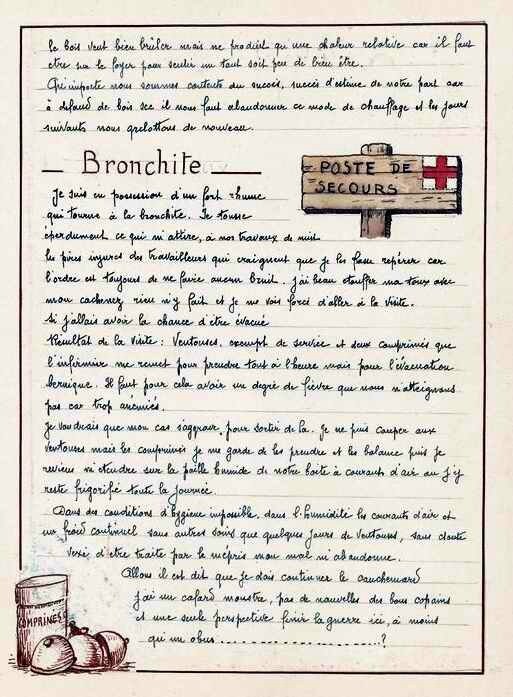 le bois veut bien brûler mais ne produit qu'une chaleur relative car il faut
être sur le foyer pour sentir un tant soit peu de bien être.
Qu'importe nous sommes contents du succès, succès d'estime de notre part car
à défaut de bois sec il nous faut abandonner ce mode de chauffage et les jours
suivants nous grelottons de nouveau.
Bronchite
POSTE DE
SECOURS
Je suis en possession d'un fort rhume
qui tourne à la bronchite. Je tousse
éperdument ce qui m'attire, à nos travaux de nuit
les pires injures des travailleurs qui craignent que je les fasse repérer car
l'ordre est toujours de ne faire aucun bruit. J'ai beau étouffer ma toux avec
mon cachenez rien n'y fait et je me vois forcé d'aller à la visite.
Si j'allais avoir la chance d'être évacué
Résultat de la visite : Ventouses, exempt de service et deux comprimés que
l'infirmier me remet pour prendre tout à l'heure mais pour l'évacuation
bernique. Il faut pour cela avoir un degré de fièvre que nous n'atteignons
pas car trop anémiés.
Je voudrais que mon cas s'aggrave pour sortir de là. Je ne puis couper aux
ventouses mais les comprimés je me garde de les prendre et les balance puis je
reviens m'étendre sur la paille humide de notre boîte à courants d'air où j'y
reste frigorifié toute la journée.
Dans des conditions d'hygiène impossible, dans l'humidité les courants d'air et
un froid continuel sans autres soins que quelques jours de ventouses, sans doute
vexé d'être traité par le mépris mon mal m'abandonne.
Allons il est dit que je dois continuer le cauchemard
j'ai un cafard monstre, pas de nouvelles des bons copains
et une seule perspective finir la guerre ici, à moins
qu'un obus......................?
COMPRIMES